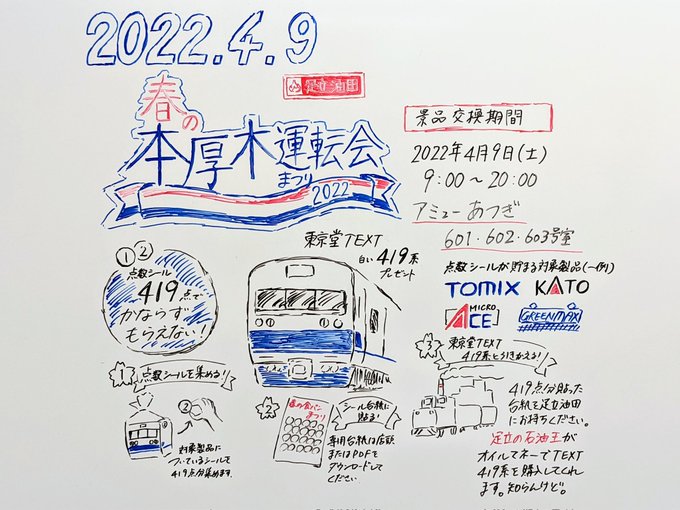 2022.4.9
足立油田
春の
本厚木運転会
まつり
2022
景品交換期間
2022年4月9日(土)
9:00〜20:00
アミューあつぎ
601・602・603号室
① ②
点数シール
419点で
かならず
もらえない!
東京堂TEXT
白い419系
プレゼント
点数シールが貯まる対象製品(一例)
TOMIX KATO
MICRO
ACE
GREENMAX
1
点数シールを集める!
2
対象製品に
ついているシールを
419点分集めます。
2
春の食パン
まつり
シール台紙に
貼る!
専用台紙は店頭
またはPDFを
ダウンロードして
ください
3
東京堂TEXT
419系とひきかえる!
419点分貼った
台紙を足立油田
にお持ちください。
足立の石油王が
オイルマネーでTEXT
419系を購入してくれ
ます。知らんけど。